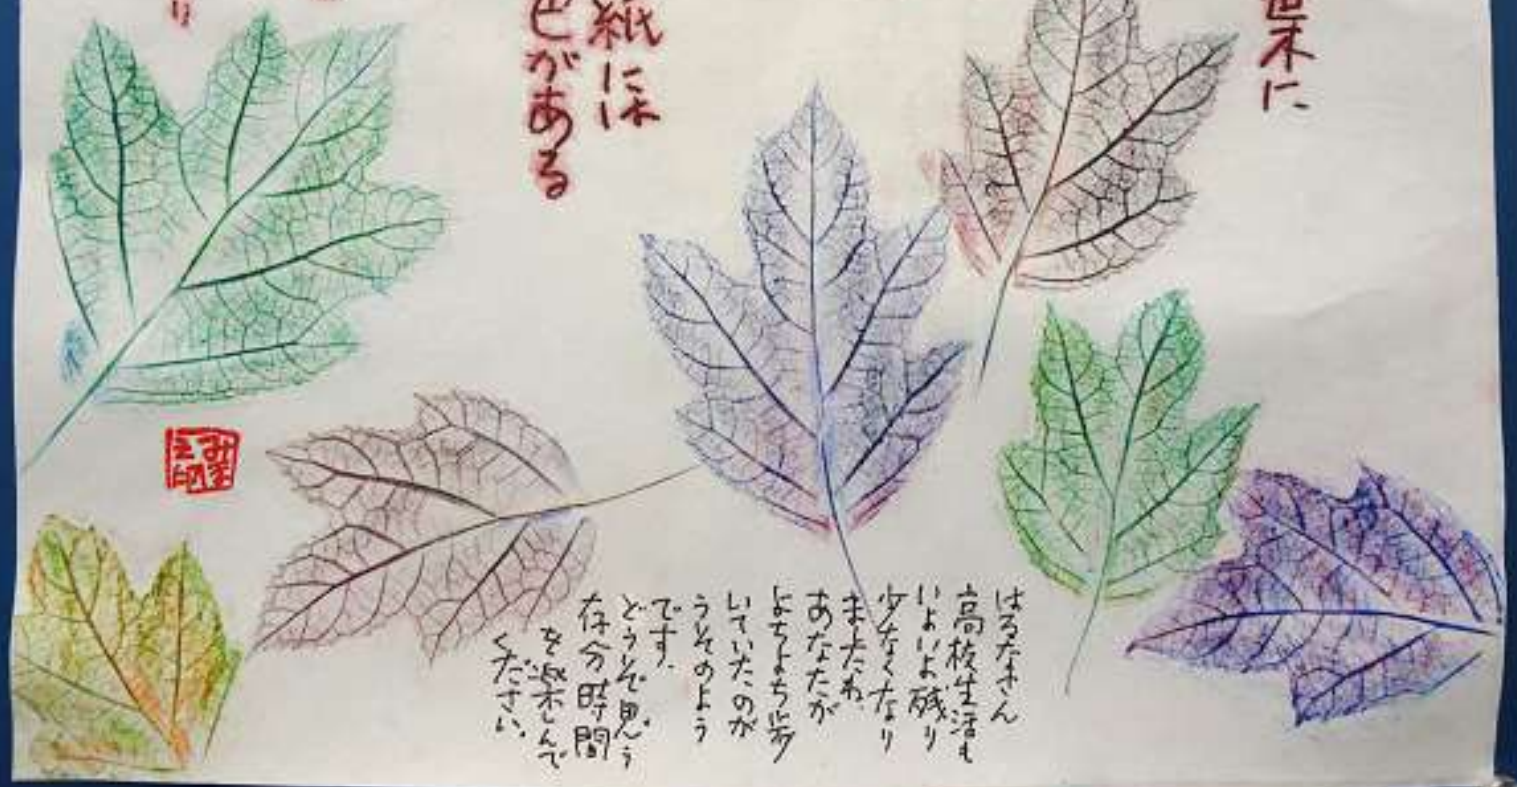 木に
紙には
色がある
はるなさん
高校生活も
いよいよ残り
少なくなり
ましたね。
あなたが
よちよち歩
いていたのが
うそのよう
です。
どうぞ思う
存分時間
を楽しんで
ください。